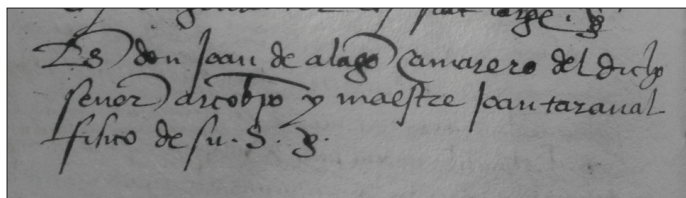 Ts don Joan de alago Camarero del dicho
senor arcobpo y maestre Joan taraual
fisico de su. S.